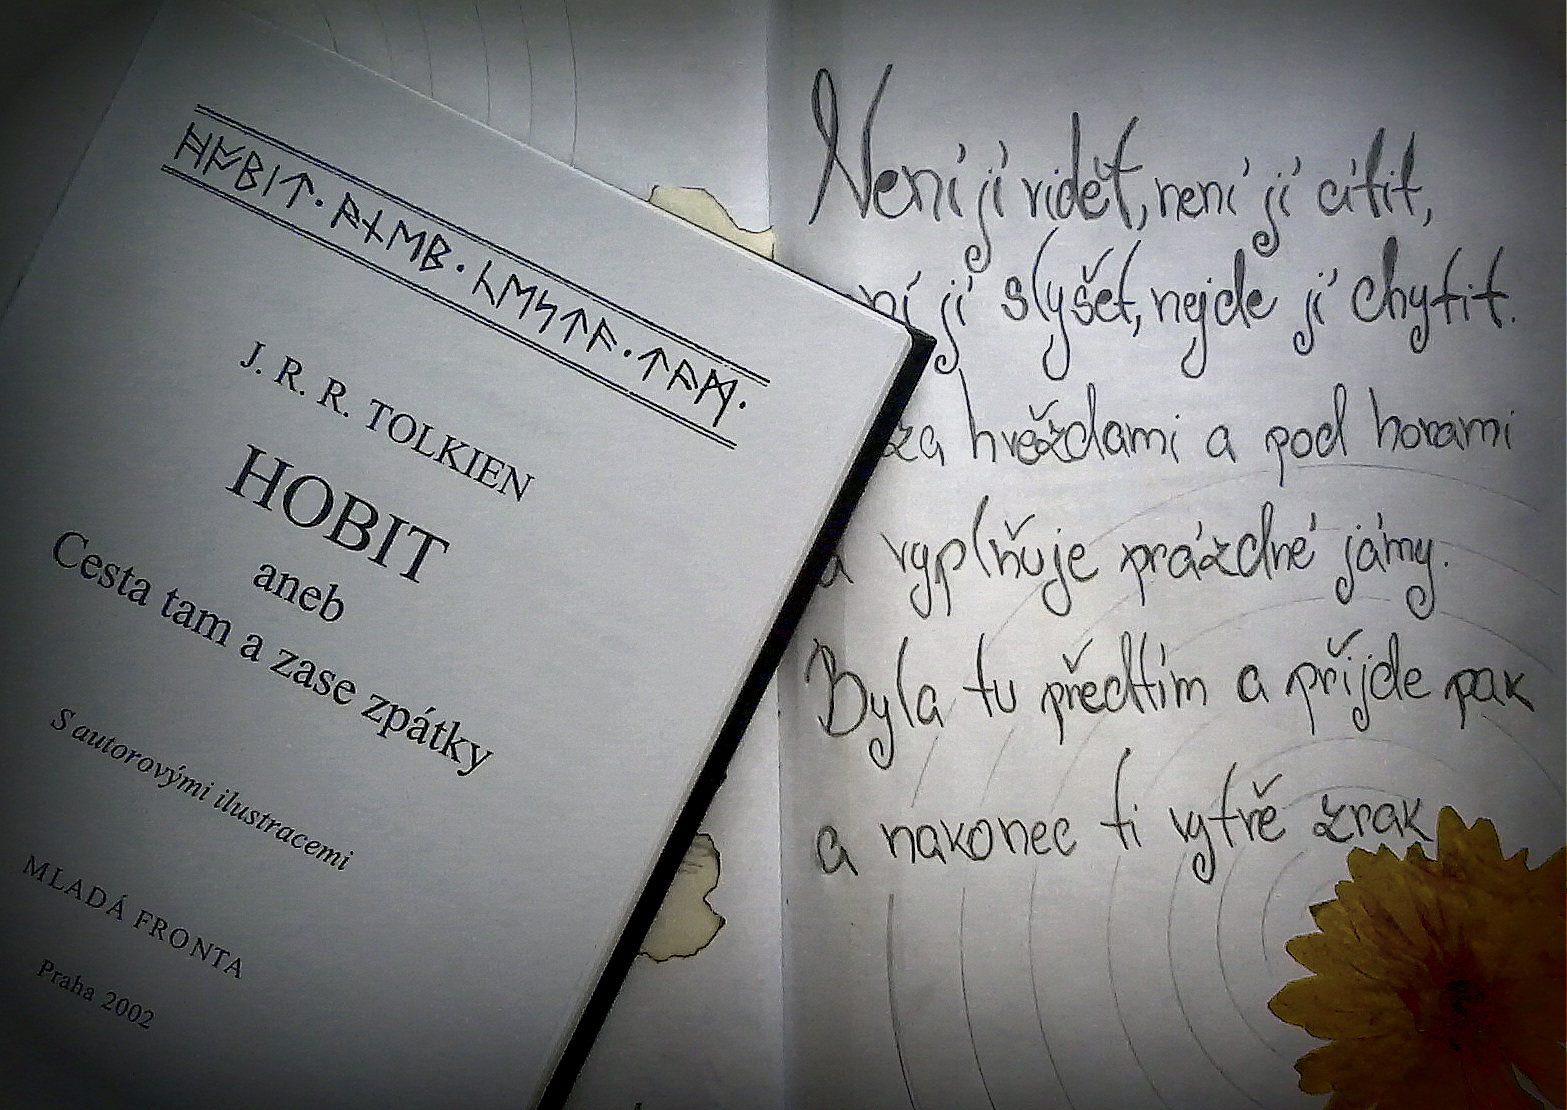 ᚻᛟᛒᛁᛏ᛫ᚪᚾᛖᛒ᛫ᚳᛖᛋᛏᚪ᛫ᛏᚪᛗ᛫
J. R. R. TOLKIEN
HOBIT
aneb
Cesta tam a zase zpátky
S autorovými ilustracemi
MLADÁ FRONTA
Praha 2002
Není jí vidět, není jí cítit,
ní jí slyšet, nejde jí chytit.
za hvězdami a pod horami
a vyplňuje prázdné jámy.
Byla tu předtím a přijde pak
a nakonec ti vytře zrak